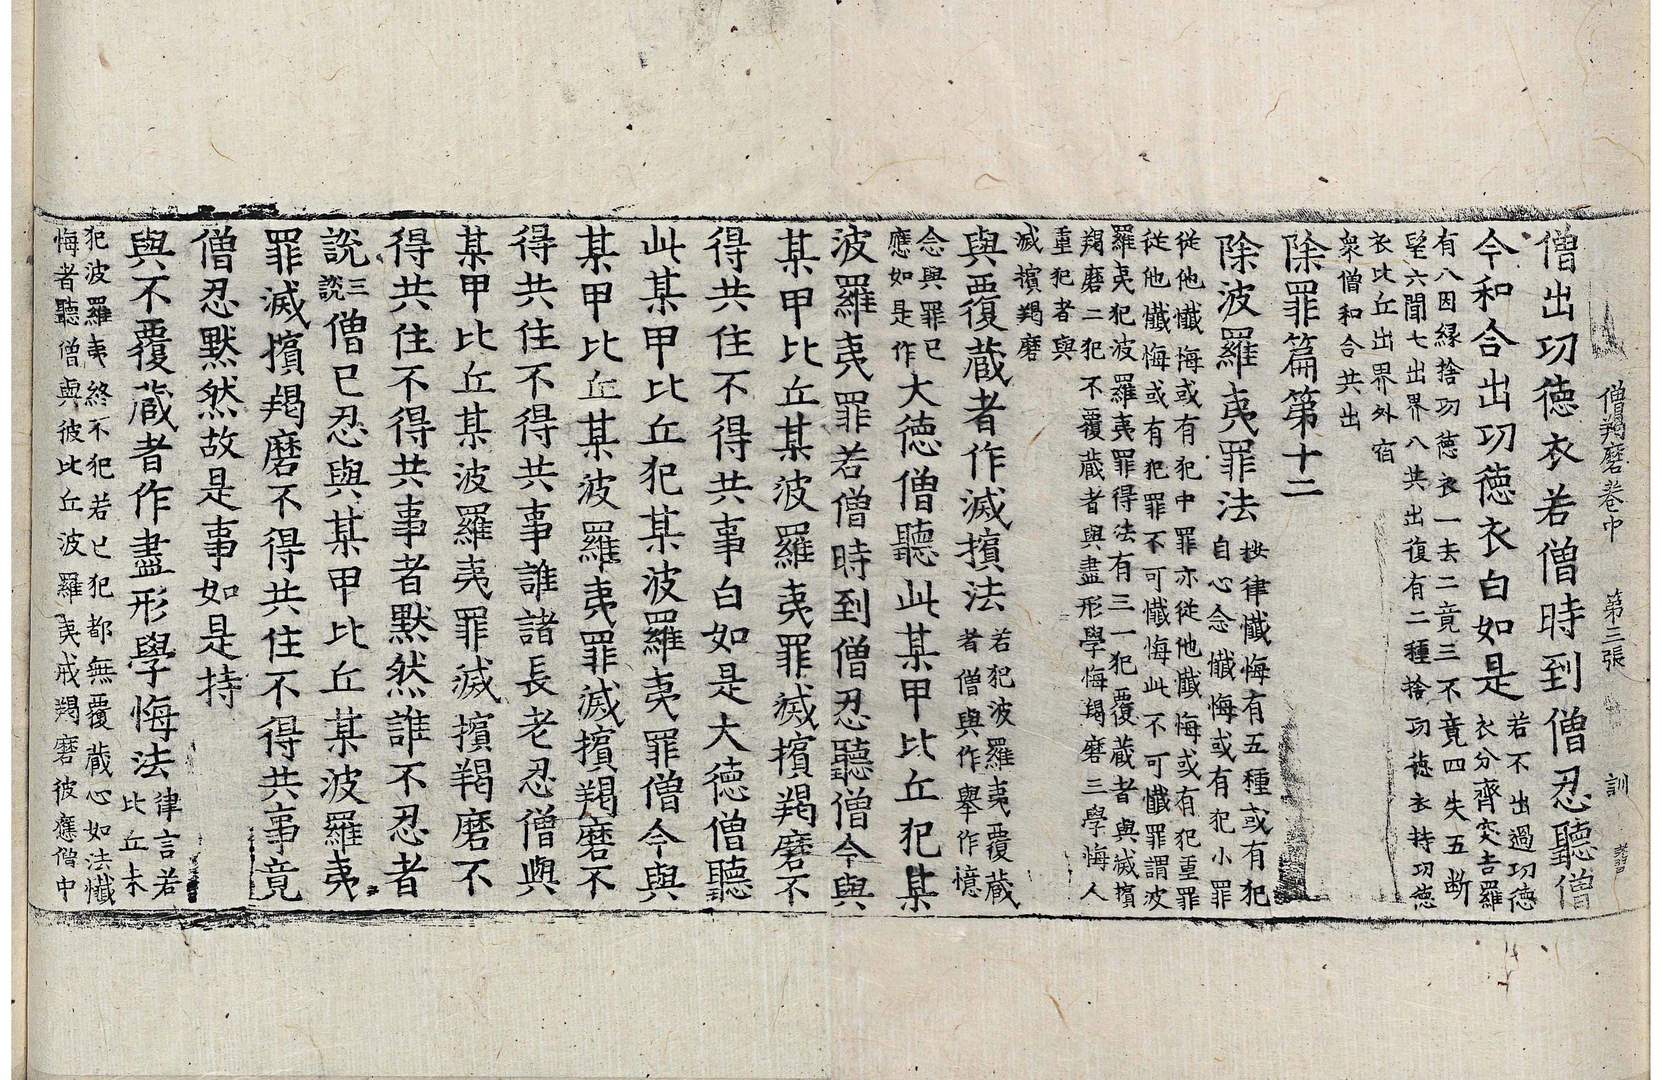 僧羯磨卷中　第三張　訓
僧出功徳衣若僧時到僧忍聽僧
今和合出功徳衣白如是若不出過功徳
衣分齊突吉羅
有八因縁捨功徳衣一去二竟三不竟四失五斷
望六聞七出界八共出復有二種捨功徳衣持功徳
衣比丘出界外宿
衆僧和合共出
除罪篇第十二
除波羅夷罪法按律懺悔有五種或有犯
自心念懺悔或有犯小罪
從他懺悔或有犯中罪亦從他懺悔或有犯重罪
從他懺悔或有犯罪不可懺悔此不可懺罪謂波
羅夷犯波羅夷罪得法有三一犯覆蔵者與滅擯
羯磨二犯不覆蔵者與盡形學悔羯磨三學悔人
重犯者與
滅擯羯磨
與覆蔵者作滅擯法若犯波羅夷覆蔵
者僧與作舉作憶
念與罪已
應如是作大徳僧聽此某甲比丘犯某
波羅夷罪若僧時到僧忍聽僧今與
某甲比丘某波羅夷罪滅擯羯磨不
得共住不得共事白如是大徳僧聽
此某甲比丘犯某波羅夷罪僧今與
某甲比丘某波羅夷罪滅擯羯磨不
得共住不得共事誰諸長老忍僧與
某甲比丘某波羅夷罪滅擯羯磨不
得共住不得共事者默然誰不忍者
說三說僧已忍與某甲比丘某波羅夷
罪滅擯羯磨不得共住不得共事竟
僧忍默然故是事如是持
與不覆蔵者作盡形學悔法律言若
比丘未
犯波羅夷終不犯若已犯都無覆蔵心如法懺
悔者聽僧與彼比丘波羅夷戒羯磨彼應僧中